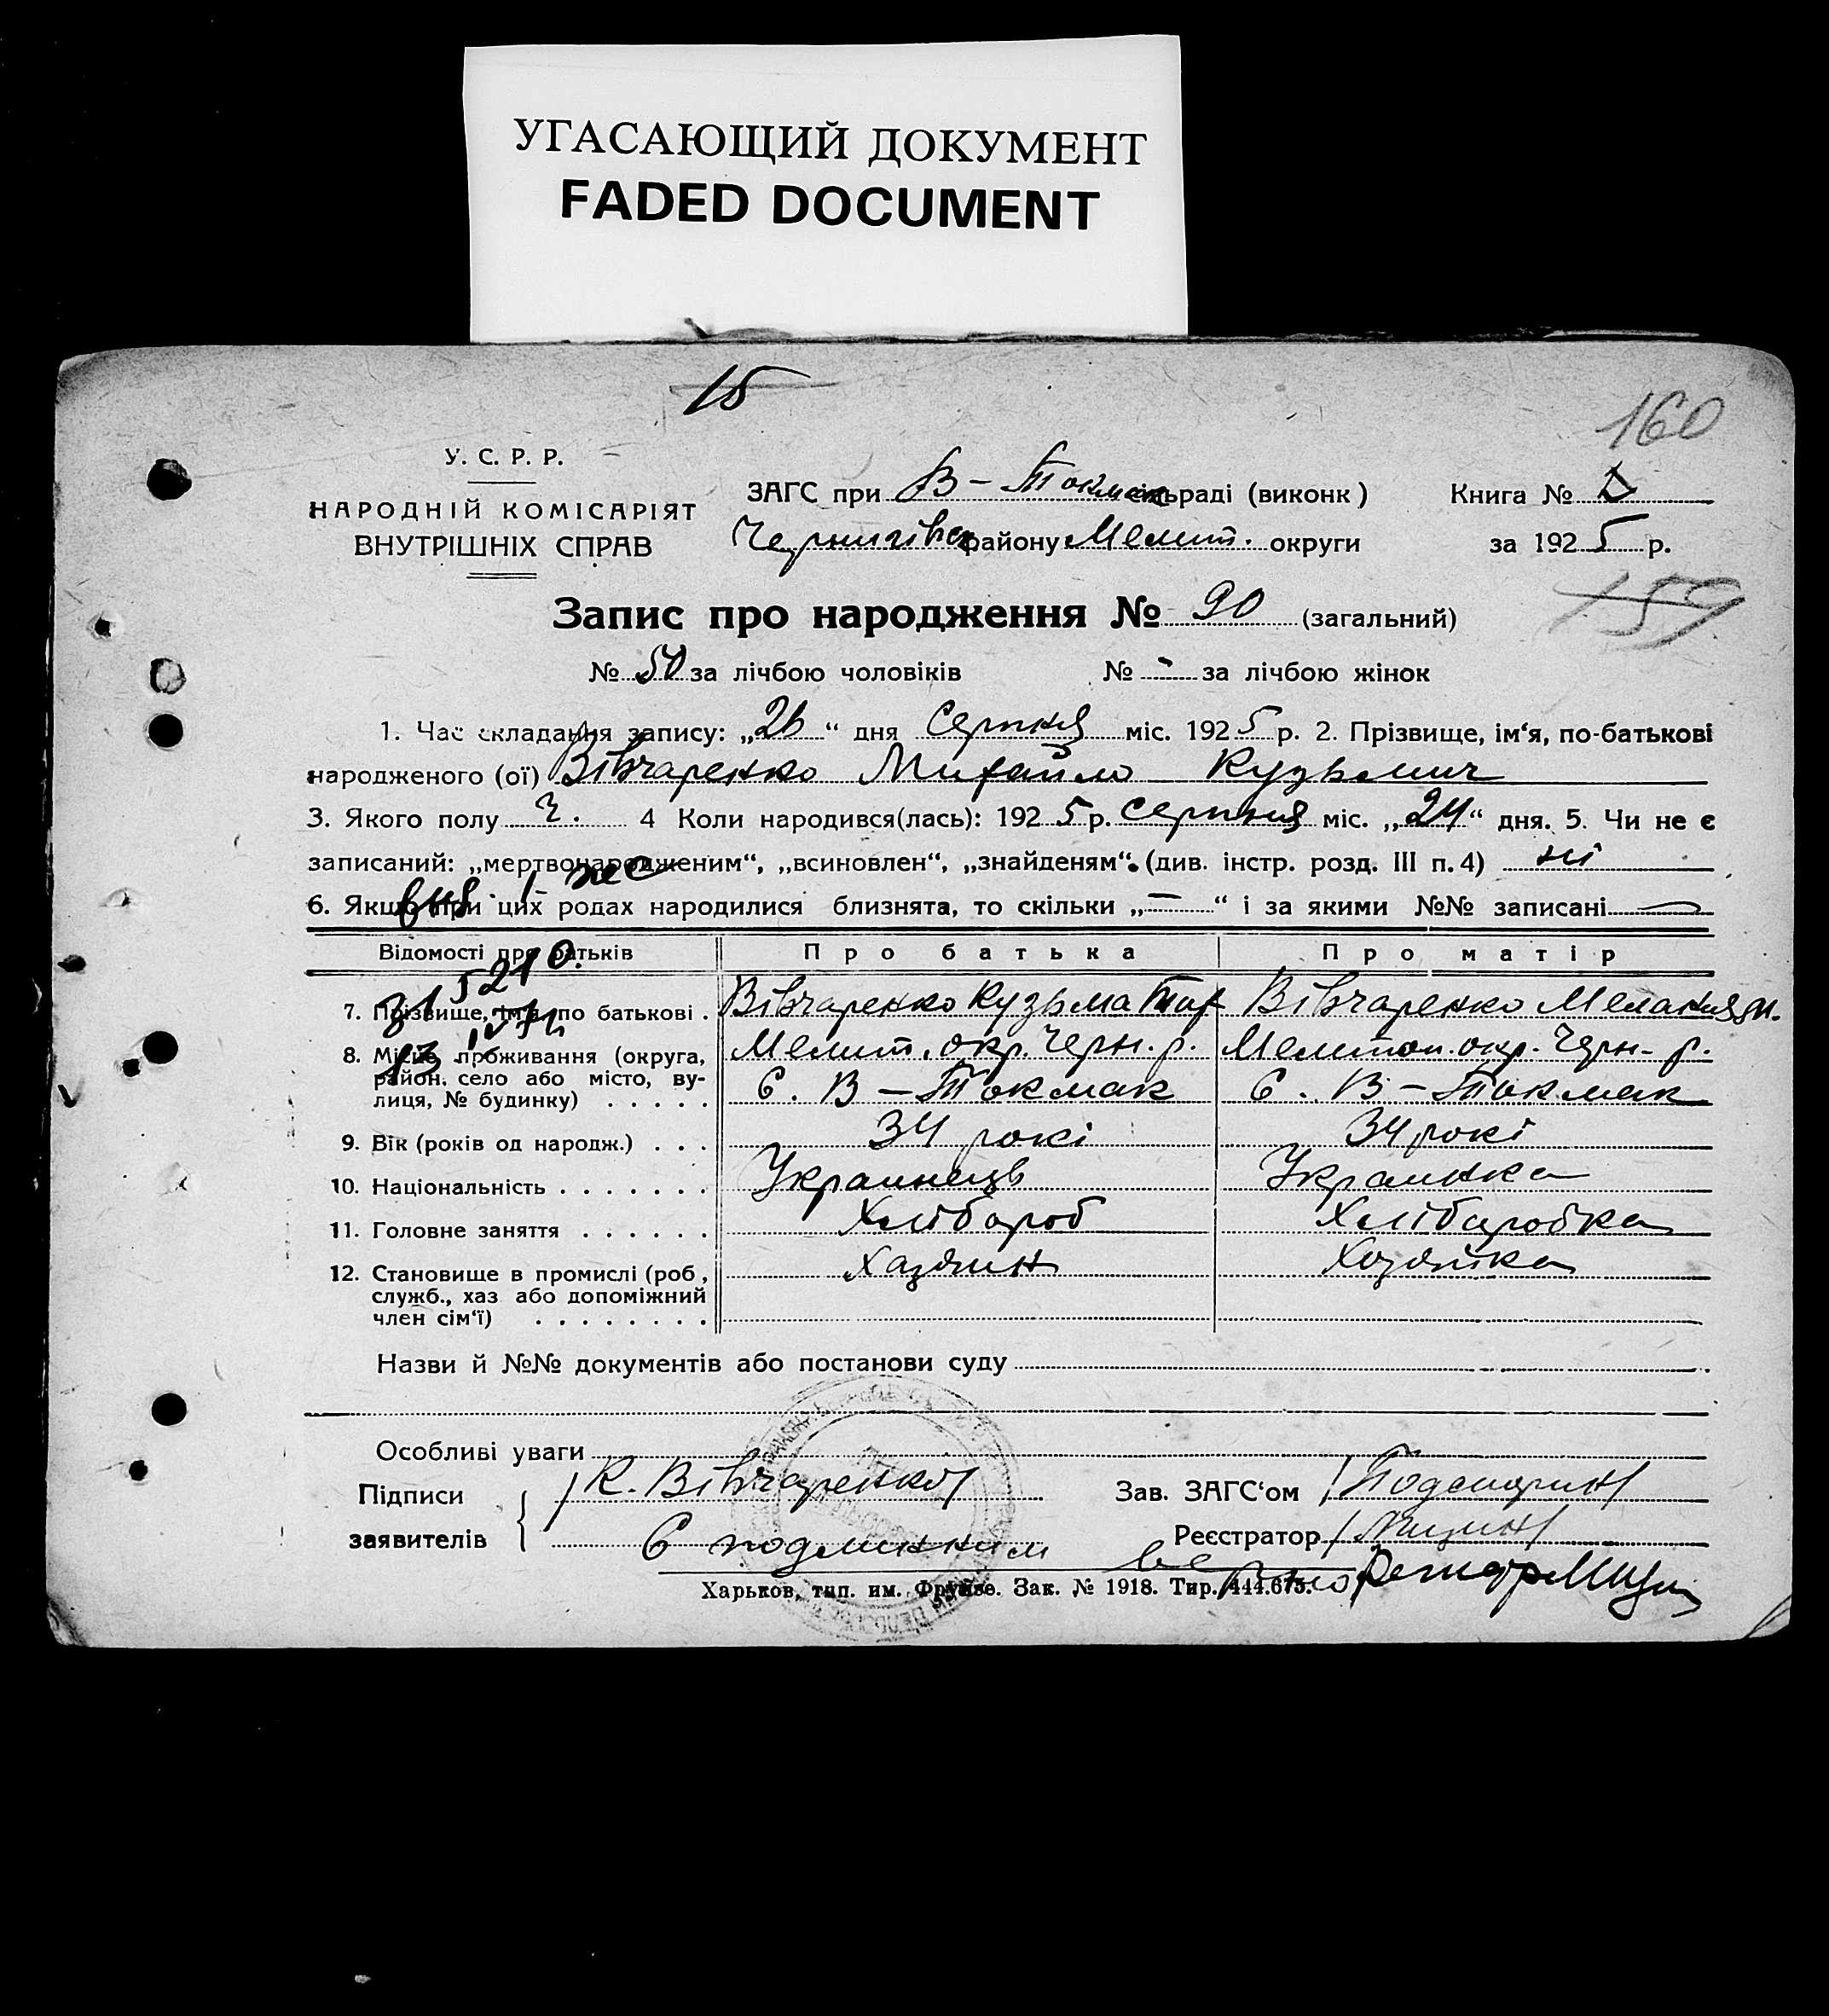 УГАСАЮЩИЙ ДОКУМЕНТ
FADED DOCUMENT
15
160
У. С. Р. Р.
НАРОДНІЙ КОМІСАРІЯТ
ВНУТРІШНІХ СПРАВ
ЗАГС при В-Токмак сільраді (виконк)
Чернигівск району Мелит. округи
Книга №
за 1925 р.
159
Запис про народження № 90 (загальний)
№ 50 за лічбою чоловіків № - за лічбою жінок
1. Час складання запису: „26“ дня Серпня міс. 1925 р. 2. Прізвище, ім‘я, по-батькові
народженого (ої) Вівчаренко Михайло Кузьмич
3. Якого полу ч. 4 Коли народився(лась): 1925 р. серпня міс. „24“ дня. 5. Чи не є
записаний: „мертвонародженим“, „всиновлен“, „знайденям“. (див. інстр. розд. III п. 4) ні
6. Якщо при цих родах народилися близнята, то скільки „—“ і за якими №№ записані —
Відомості про батьків Про батька Про матір
7. Прізвище, ім‘я, по батькові . Вівчаренко Кузьма Вівчаренко Мелания
8. Місце проживання (округа, Мелит. окр. Черн. р. Мелитоп. окр. Черн. р.
район, село або місто, ву-
лиця, № будинку) . . . . . С. В-Токмак С. В-Токмак
9. Вік (років од народж.) . . . 34 рокі 34 рокі
10. Національність . . . . . . . Украинець Украинка
11. Головне заняття . . . . . . Хлібороб Хліборобка
12. Становище в промислі (роб, Хазяин Хозяйка
служб., хаз або допоміжний
член сім‘ї) . . . . . . . .
Назви й №№ документів або постанови суду
Особливі уваги
Підписи /К. Вівчаренко/ Зав. ЗАГС‘ом
заявителів Реєстратор
С подлинним верно
Харьков, тип. им. Фрунзе. Зак. № 1918. Тир. 444.675.